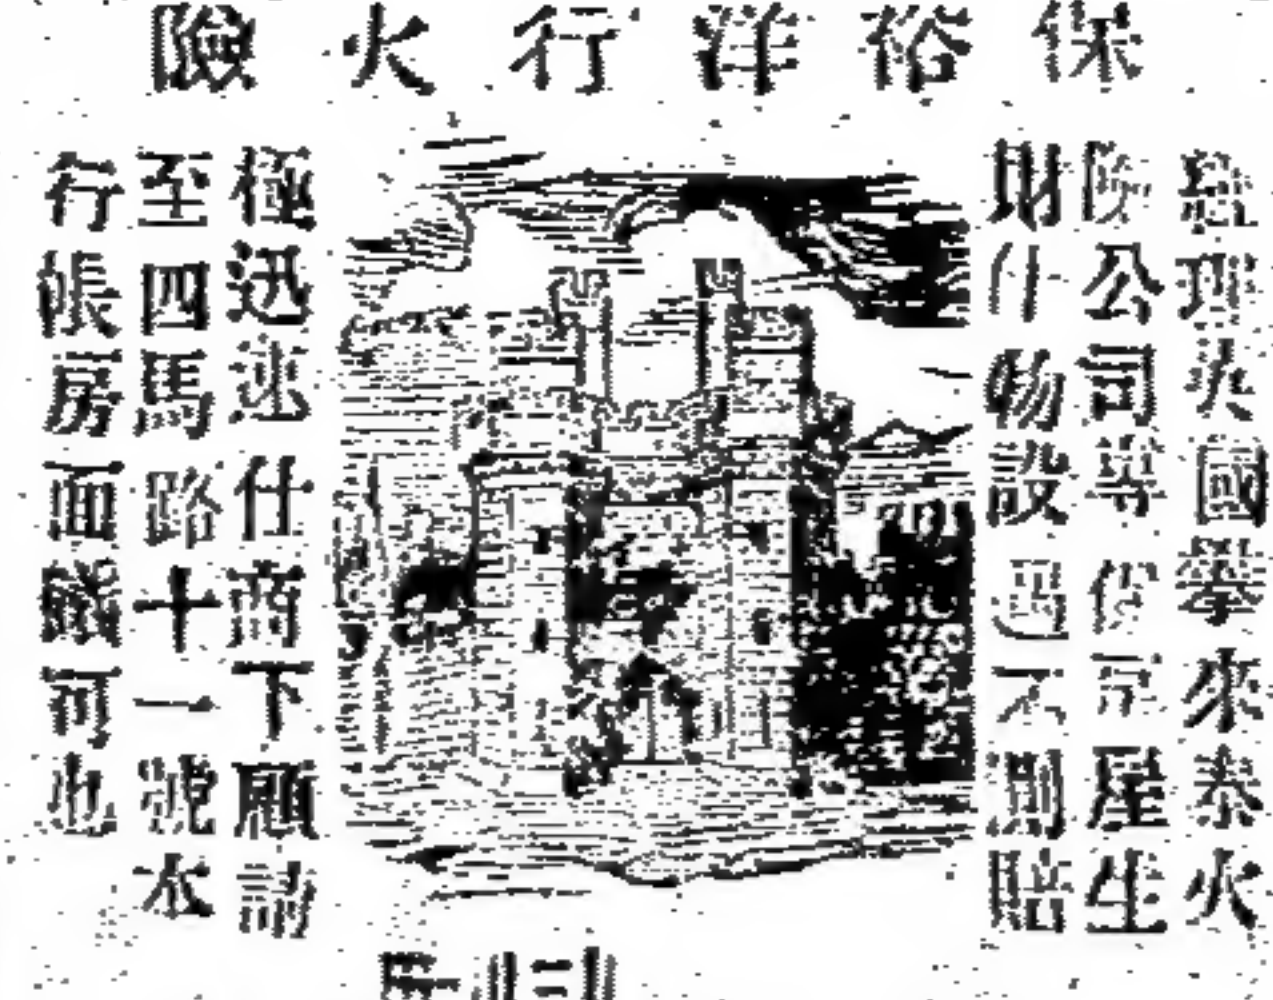 保裕洋行火險
總理英國攀來泰火
險公司等保房屋生
財什物設遇不測賠
極迅速仕商下顧請
至四馬路十一號本
行帳房面議可也